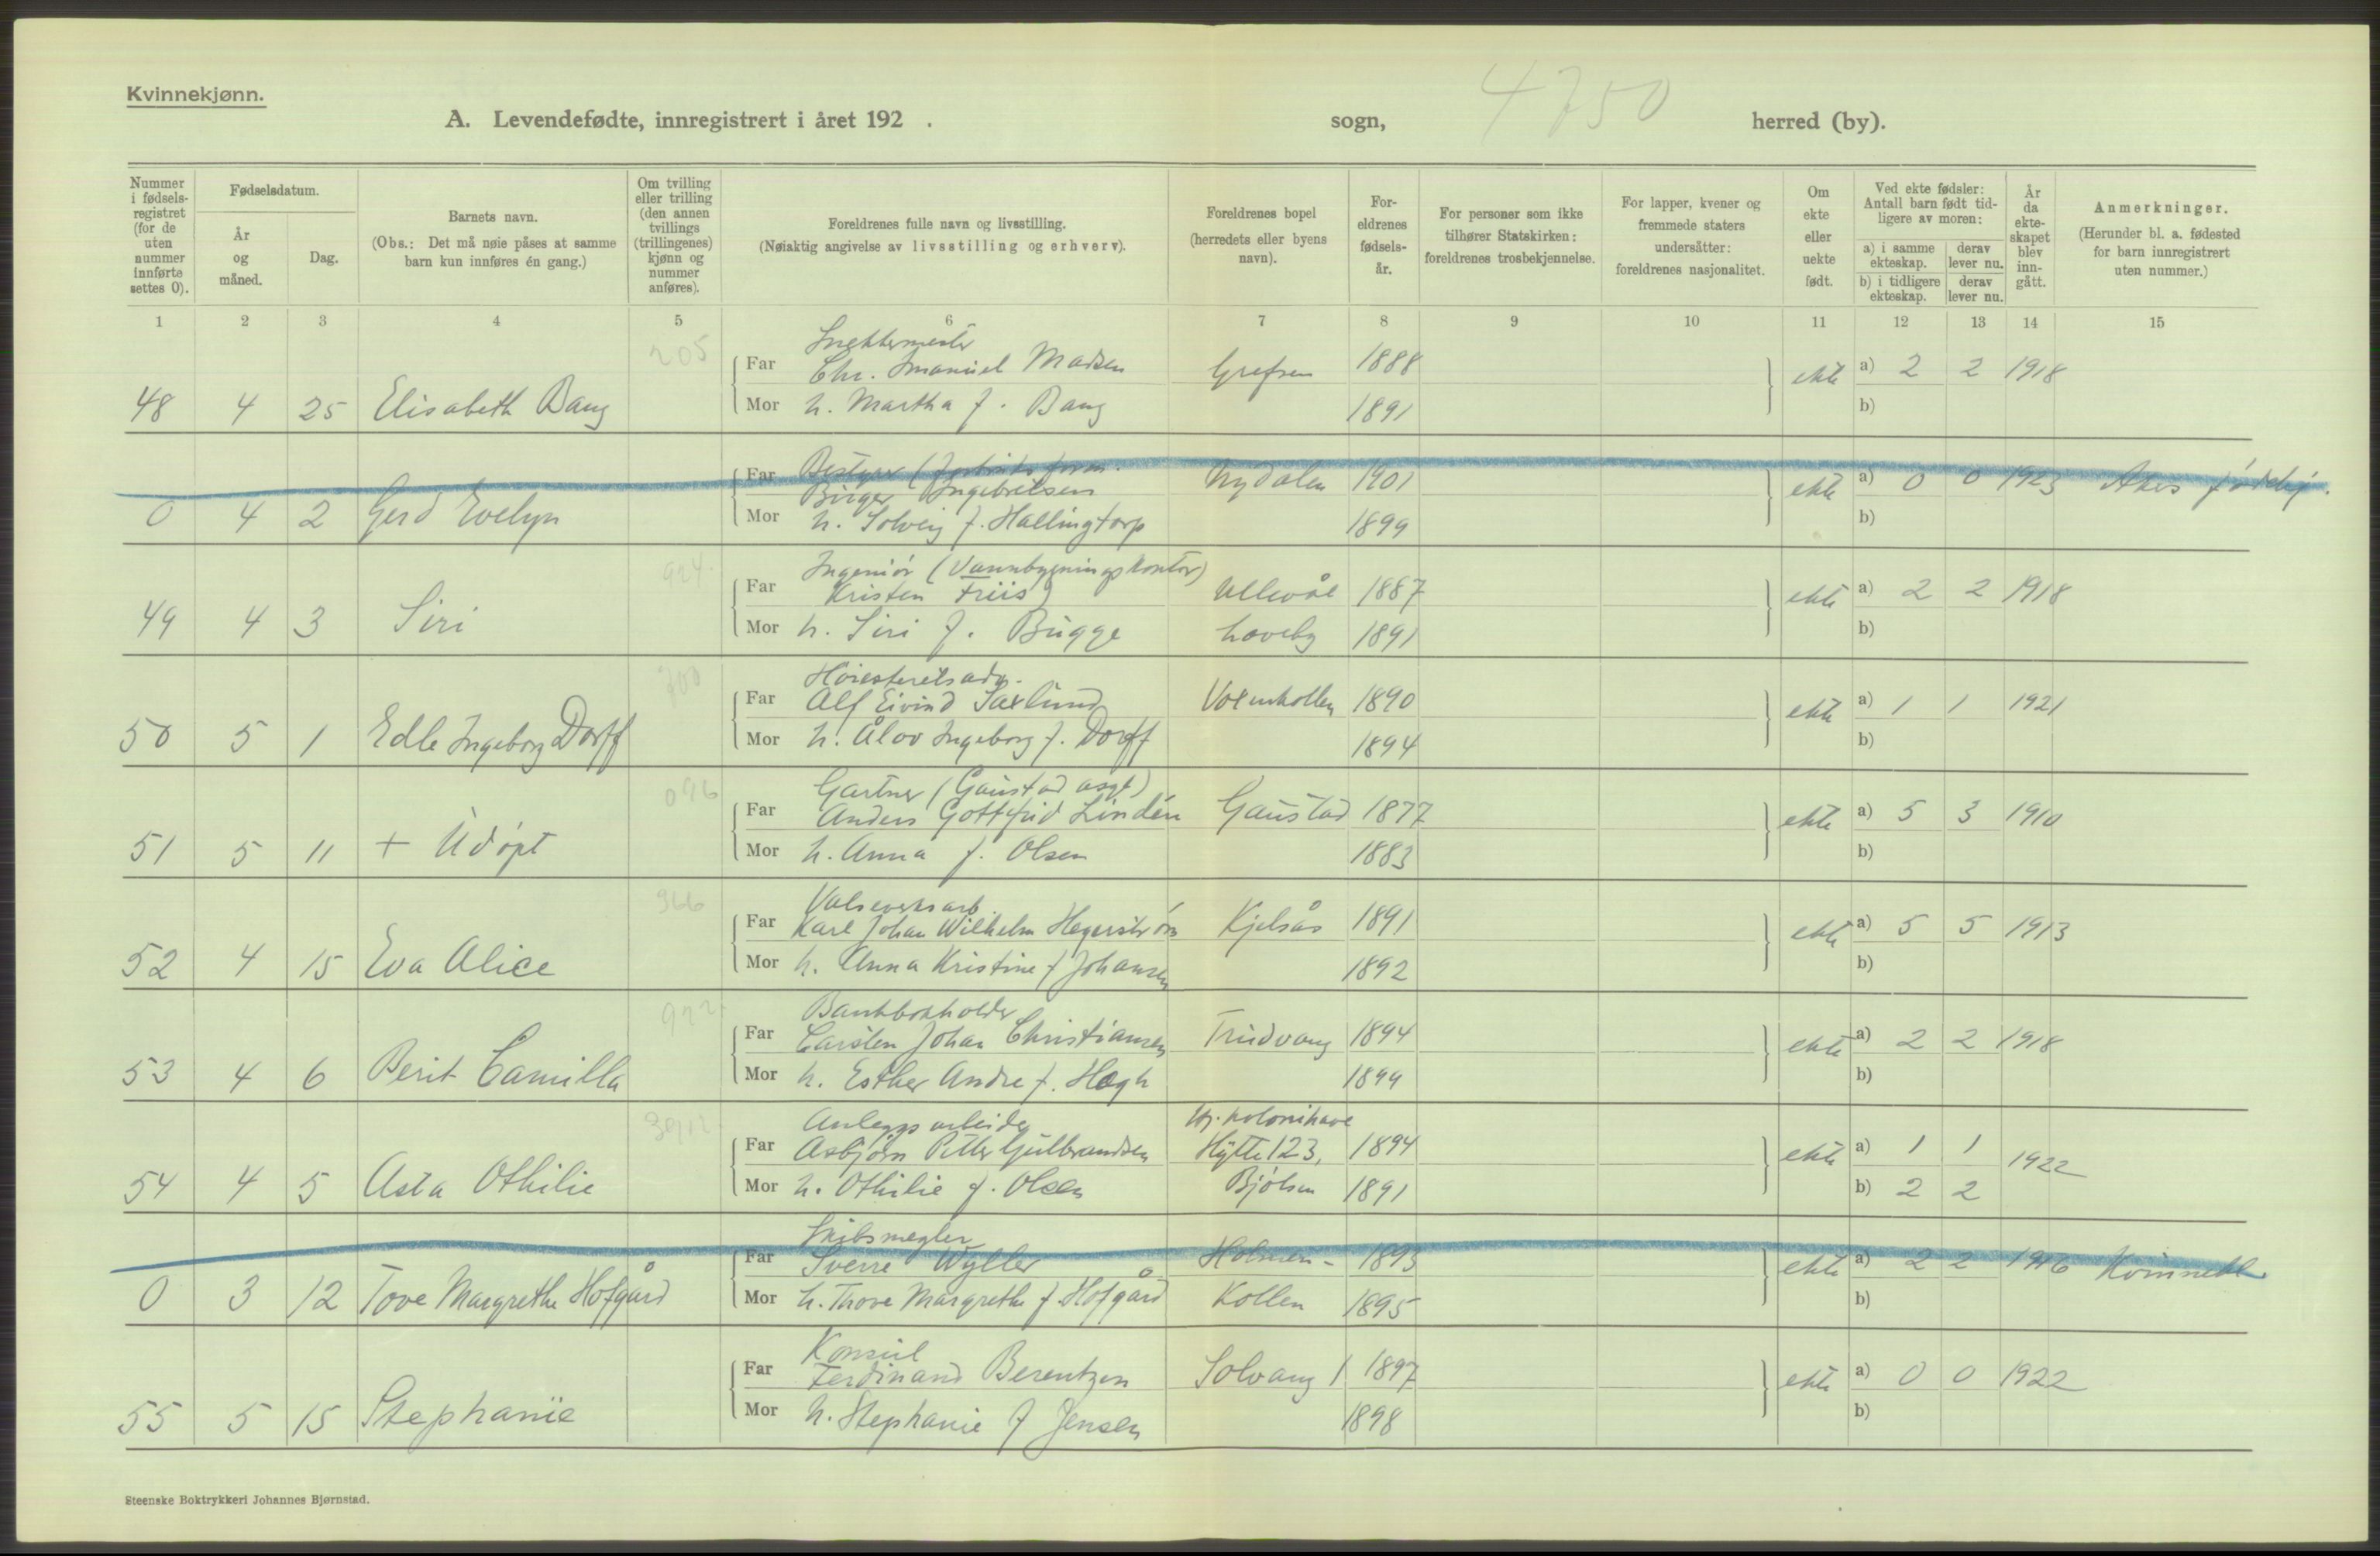 Kvinnekjønn.
A. Levendefødte, innregistrert i året 192 . sogn, 4750 herred (by).
Nummer i fødsels-registret (for de uten nummer innførte settes 0).
Fødselsdatum.
År og måned.
Dag.
Barnets navn.
(Obs.: Det må nøie påses at samme barn kun innføres én gang.)
Om tvilling eller trilling (den annen tvillings (trillingenes) kjønn og nummer anføres).
Foreldrenes fulle navn og livsstilling.
(Nøiaktig angivelse av livsstilling og erhverv).
Foreldrenes bopel (herredets eller byens navn).
For-eldrenes fødsels-år.
For personer som ikke tilhører Statskirken: foreldrenes trosbekjennelse.
For lapper, kvener og fremmede staters undersåtter: foreldrenes nasjonalitet.
Om ekte eller uekte født.
Ved ekte fødsler: Antall barn født tid-ligere av moren:
a) i samme ekteskap. derav lever nu.
b) i tidligere ekteskap. derav lever nu.
År da ekte-skapet blev inn-gått.
Anmerkninger.
(Herunder bl. a. fødested for barn innregistrert uten nummer.)
1 2 3 4 5 6 7 8 9 10 11 12 13 14 15
205
Far Chr. Imanuel Madsen Grefsen 1888 ekte a) 2 2 1918
48 4 25 Elisabeth Bang Mor h. Martha f. Bang 1891 b)
Far Bestyrer
Birger Ingebretsen Nydalen 1901 ekte a) 0 0 1923 Akers
0 4 2 Gerd Evelyn Mor h. Solveig f. Hallingtorp 1899 b)
924
Ingeniør (Vannbygningskontor)
Far Kristen Friis Ullevål 1887 ekte a) 2 2 1918
49 4 3 Siri Mor h. Siri f. Bugge haveby 1891 b)
700
Høiesteretsadv.
Far Alf Eivind Saxlund Voxenkollen 1890 ekte a) 1 1 1921
50 5 1 Edle Ingeborg Dorff Mor h. Ålov Ingeborg f. Dorff 1894 b)
Gartner (Gaustad asyl)
Far Anders Gottfrid Lindén Gaustad 1877 ekte a) 5 3 1910
51 5 11 + Udøpt Mor h. Anna f. Olsen 1883 b)
Valseverksarb.
Far Karl Johan Wilhelm Hegerstrøm Kjelsås 1891 ekte a) 5 5 1913
52 4 15 Eva Alice Mor h. Anna Kristine f Johansen 1892 b)
922
Bankbokholder
Far Carsten Johan Christiansen Trudvang 1894 ekte a) 2 2 1918
53 4 6 Berit Camilla Mor h. Esther Andre f. Høgh 1899 b)
Anleggsarbeider kolonihave
Far Asbjørn Petter Gulbrandsen Hytte 123, 1894 ekte a) 1 1 1922
54 4 5 Asta Othilie Mor h. Othilie f. Olsen Bjølsen 1891 b) 2 2
Skibsmegler
Far Sverre Wyller Holmen- 1893 ekte a) 2 2 1916 Kvinnekl.
0 3 12 Tove Margrethe Hofgård Mor h. Thove Margrethe f. Hofgård Kollen 1895 b)
Konsul
Far Ferdinand Berentzen Solvang 1 1897 ekte a) 0 0 1922
55 5 15 Stephanie Mor h. Stephanie f Jensen 1898 b)
Steenske Boktrykkeri Johannes Bjørnstad.